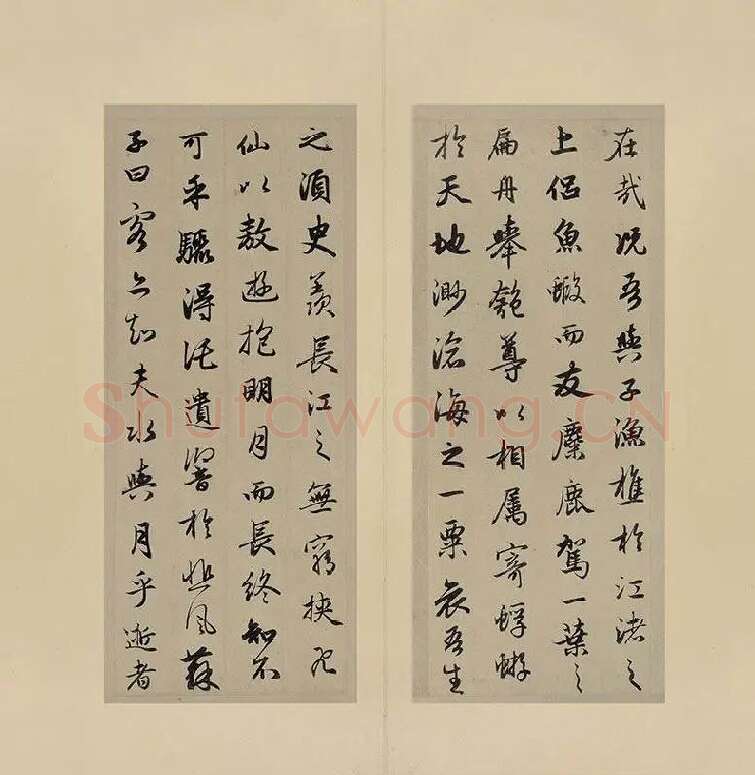 在哉況吾與子漁樵於江渚之
上侶魚蝦而友麋鹿駕一葉之
扁舟舉匏尊以相属寄蜉蝣
於天地渺滄海之一粟哀吾生
之須臾羨長江之無窮挾飛
仙以敖遊抱明月而長終知不
可乎驟得託遺響於悲風蘇
子曰客亦知夫水與月乎逝者
Shufawang.CN